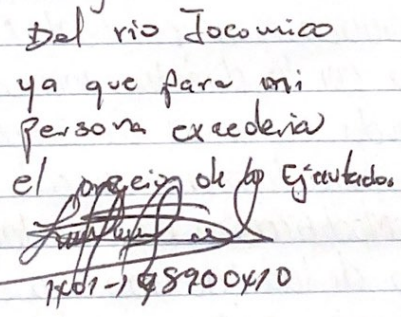 Del rio Jocomico
ya que para mi
persona excederia
el precio de lo Ejecutado.